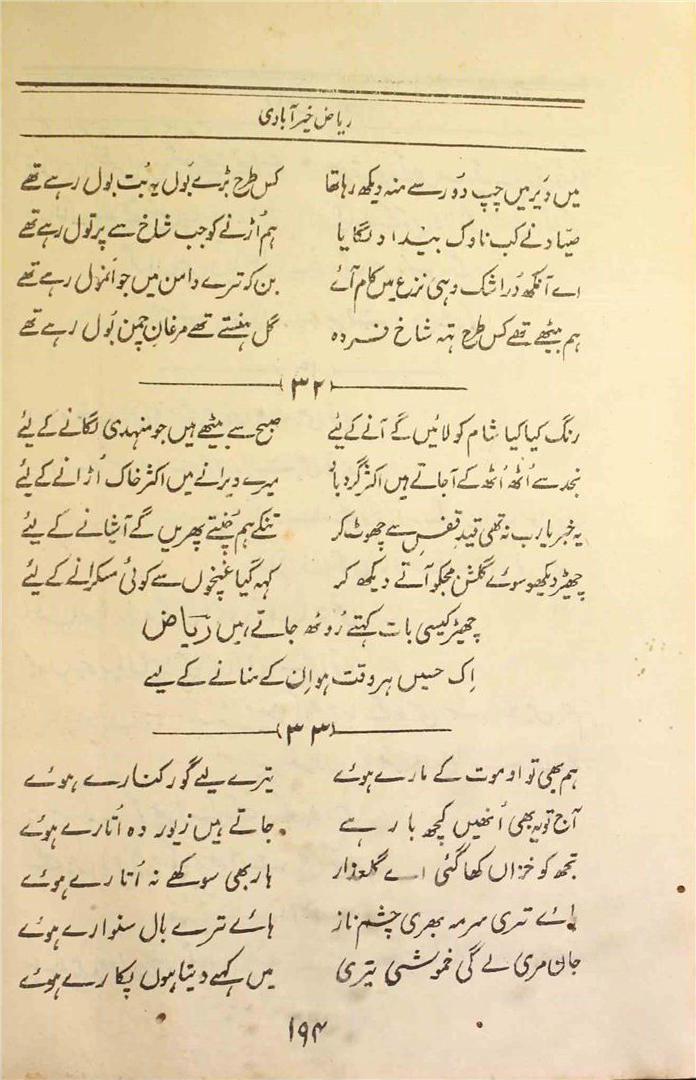 ریاض خیرآبادی
میں دَیر میں چپ دُور سے منہ دیکھ رہا تھا کس طرح بڑے بُول یہ بُت بول رہے تھے
صیّاد نے کب ناوک بیداد لگایا ہم اُڑنے کو جب شاخ سے پر تول رہے تھے
اے آنکھ دُرِ اشک وہی نزع میں کام آئے بن کہ ترے دامن میں جو انمول رہے تھے
ہم بیٹھے تھے کس طرح تہہ شاخ فسردہ گل ہنستے تھے مرغانِ چمن بُول رہے تھے
(۳۲)
رنگ کیا کیا شام کو لائیں گے آنے کے لیٔے صبح سے بیٹھے ہیں جو منہدی لگانے کے لیٔے
نجد سے اُٹھ اُٹھ کے آجاتے ہیں اکثر گرد باد میرے ویرانے میں اکثر خاک اُڑانے کے لیٔے
یہ خبر یارب نہ تھی قیدِ قفس سے چھوٹ کر تنکے ہم چُنتے پھریں گے آشیانے کے لیٔے
چھیڑ دیکھو سوئے گلشن مجکو آتے دیکھ کر کہہ گیا غنچوں سے کوئی مسکرانے کے لیٔے
چھیڑ کیسی بات کہتے رُوٹھ جاتے ہیں ریاضؔ
اِک حسیں ہر وقت ہو اِن کے منانے کے لیے
(۳۳)
ہم بھی تو او موت کے مارے ہوئے تیرے لیے گور کنارے ہوئے
آج تو یہ بھی اُنھیں کچھ بار ہے جاتے ہیں زیور وہ اُتارے ہوئے
تجھ کو خزاں کھا گئی اے گلعذار ہار بھی سوکھے نہ اُتارے ہوئے
ہائے تری سرمہ بھری چشم ناز ہائے ترے بال سنوارے ہوئے
جان مری لے گی خموشی تیری میں کہے دیتا ہوں پکارے ہوئے
۱۹۴